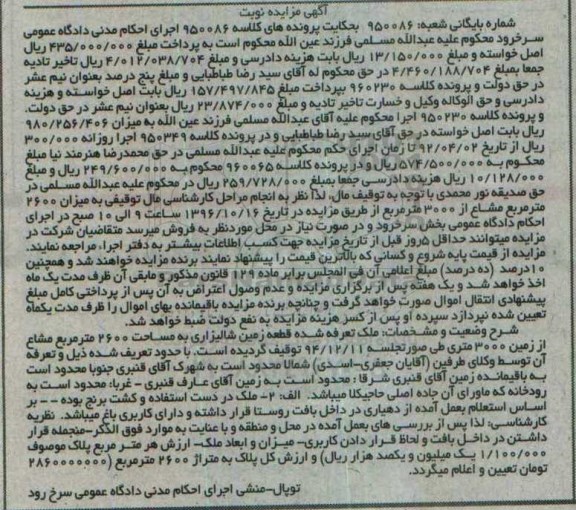 آگهی مزایده نوبت
شماره بایگانی شعبه: ۹۵۰۰۸۶ بحکایت پرونده های کلاسه ۹۵۰۰۸۶ اجرای احکام مدنی دادگاه عمومی
سرخرود محکوم علیه عبداله مسلمی فرزند عین اله محکوم است به پرداخت مبلغ ۴۳۵/۰۰۰/۰۰۰ ریال
اصل خواسته و مبلغ ۱۳/۱۵۰/۰۰۰ ریال بابت هزینه دادرسی و مبلغ ۴/۰۱۲/۰۳۸/۷۰۴ ریال تاخیر تادیه
جمعا بمبلغ ۴/۴۶۰/۱۸۸/۷۰۴ در حق محکوم له آقای سید رضا طباطبایی و مبلغ پنج درصد بعنوان نیم عشر
در حق دولت و پرونده کلاسه ۹۶۰۲۳۰ بپرداخت مبلغ ۱۵۷/۴۹۷/۸۴۵ ریال بابت اصل خواسته و هزینه
دادرسی و حق الوکاله وکیل و خسارت تاخیر تادیه و مبلغ ۲۳/۸۷۴/۰۰۰ ریال بعنوان نیم عشر در حق دولت.
و پرونده کلاسه ۹۵۰۲۳۰ اجرا محکوم علیه آقای عبداله مسلمی فرزند عین الله به میزان ۹۸۰/۲۵۶/۴۰۶
ریال بابت اصل خواسته در حق آقای سید رضا طباطبایی و در پرونده کلاسه ۹۵۰۳۴۹ اجرا روزانه ۳۰۰/۰۰۰
ریال از تاریخ ۹۲/۰۴/۰۲ تا زمان اجرای حکم محکوم علیه عبداله مسلمی در حق محمدرضا هنرمند نیا مبلغ
محکوم به ۵۷۴/۵۰۰/۰۰۰ ریال و در پرونده کلاسه ۹۶۰۰۶۵ محکوم به ۲۴۹/۶۰۰/۰۰۰ ریال و مبلغ
۱۰/۱۲۸/۰۰۰ ریال هزینه دادرسی جمعا بمبلغ ۲۵۹/۷۲۸/۰۰۰ ریال در محکوم علیه عبداله مسلمی در
حق صدیقه نور محمدی با توجه به توقیف مال، لذا نظر به انجام مراحل کارشناسی مال توقیفی به میزان ۲۶۰۰
مترمربع مشاع از ۳۰۰۰ مترمربع از طریق مزایده در تاریخ ۱۳۹۶/۱۰/۱۶ ساعت ۹ الی ۱۰ صبح در اجرای
احکام دادگاه عمومی بخش سرخرود و در صورت نیاز در محل موردنظر به فروش میرسد متقاضیان شرکت در
مزایده میتوانند حداقل ۵روز قبل از تاریخ مزایده جهت کسب اطلاعات بیشتر به دفتر اجرا، مراجعه نمایند.
مزایده از قیمت پایه شروع و کسانی که بالاترین قیمت را پیشنهاد نمایند برنده مزایده خواهند شد و همچنین
۱۰درصد (ده درصد) مبلغ اعلامی آن فی المجلس برابر ماده ۱۲۹ قانون مذکور و مابقی آن ظرف مدت یک ماه
اخذ خواهد شد و یک هفته پس از برگزاری مزایده و عدم وصول اعتراض به آن پس از پرداختی کامل مبلغ
پیشنهادی انتقال اموال صورت خواهد گرفت و چنانچه برنده مزایده باقیمانده بهای اموال را ظرف مدت یکماه
تعیین شده نپردازد سپرده او پس از کسر هزینه مزایده به نفع دولت ضبط خواهد شد.
شرح وضعیت و مشخصات: ملک تعرفه شده قطعه زمین شالیزاری به مساحت ۲۶۰۰ مترمربع مشاع
از زمین ۳۰۰۰ متری طی صورتجلسه ۹۴/۱۲/۱۱ توقیف گردیده است. با حدود تعریف شده ذیل و تعرفه
آن توسط وکلای طرفین (آقایان جعفری-اسدی) شمالا محدود است به شهرک آقای قنبری جنوبا محدود است
به باقیمانده زمین آقای قنبری شرقا : محدود است به زمین آقای عارف قنبری - غربا: محدود است به
رودخانه که ماورای آن جاده اصلی حاجیکلا میباشد. الف: ۲- ملک در دست استفاده و کشت برنج بوده -- بر
اساس استعلام بعمل آمده از دهیاری در داخل بافت روستا قرار داشته و دارای کاربری باغ میباشد. نظریه
کارشناسی: لذا پس از بررسی های بعمل آمده در محل و منطقه و با عنایت به موارد فوق الذکر-منجمله قرار
داشتن در داخل بافت و لحاظ قرار دادن کاربری- میزان و ابعاد ملک- ارزش هر متر مربع پلاک موصوف
۱/۱۰۰/۰۰۰ یک میلیون و یکصد هزار ریال) و ارزش کل پلاک به متراژ ۲۶۰۰ مترمربع (۲۸۶۰۰۰۰۰۰۰)
تومان تعیین و اعلام میگردد.
توپال-منشی اجرای احکام مدنی دادگاه عمومی سرخ رود